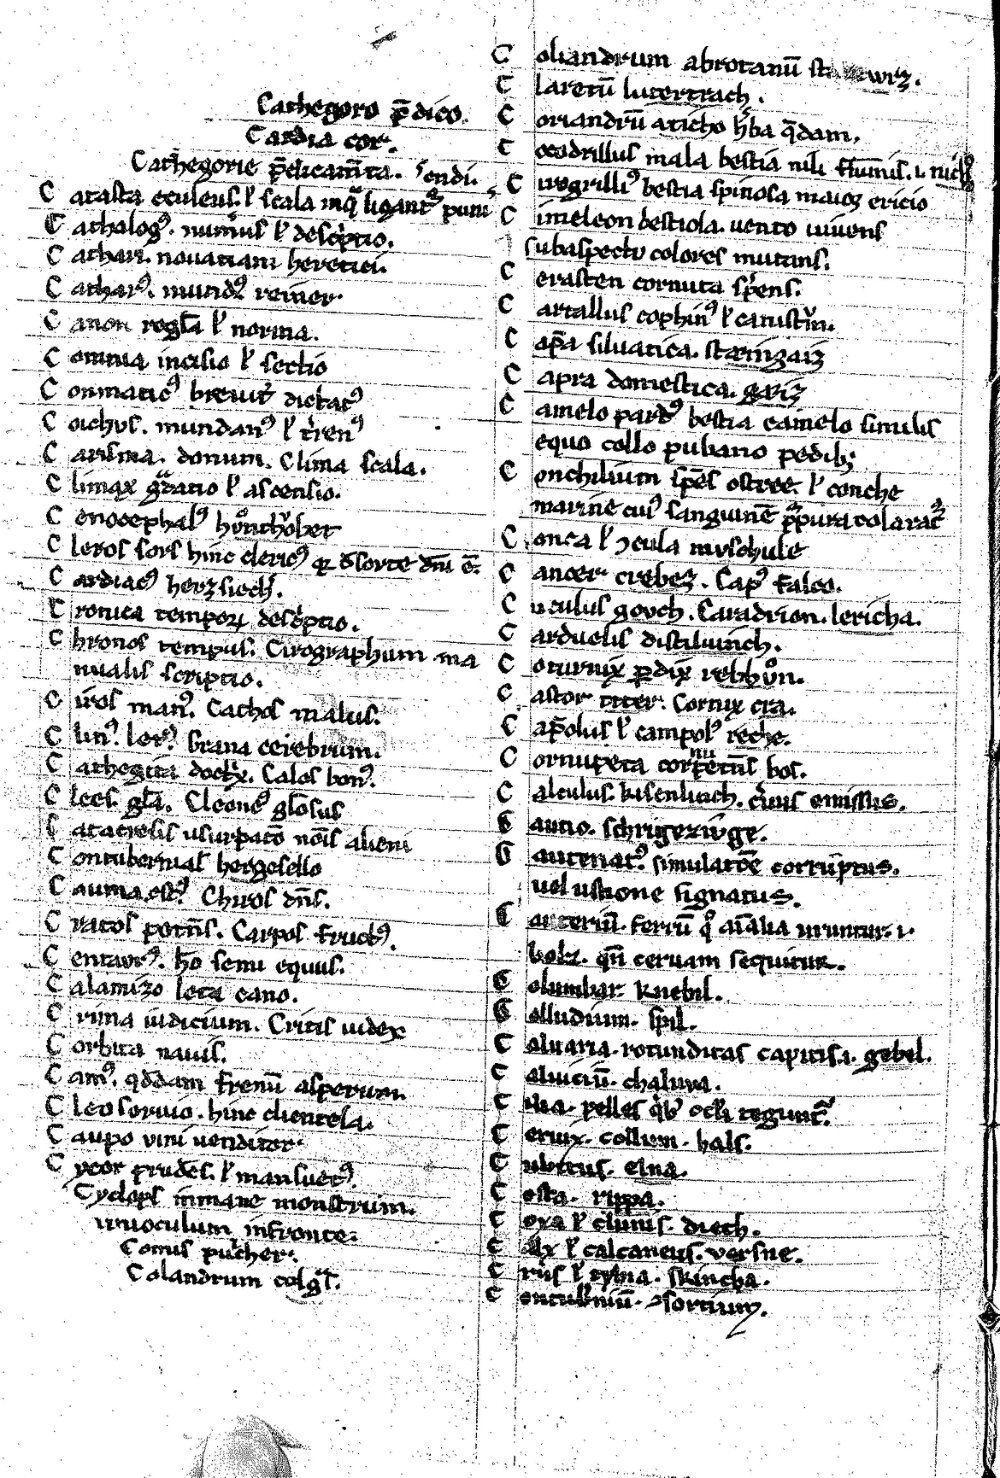 Cathegoro p̄dico.
Cardia cor.
Cathegorie p̄dicam̄ta. sendi.
C atasta eculeus. ł scala in q̄ ligant᷑ puni
C athalogꝰ. numerus ł desc̓ptio.
C athari. novatiani heretici.
C atharꝰ. mundꝰ reiner
C anon regl̄a ł norma.
C omma incisio ł sectio
C ommaticꝰ brevit̓ dictatꝰ
C oichus. mundanꝰ ł t̓renꝰ
C arisma. donum. Clima scala.
C limax gͣdatio ł ascensio.
C enocephalꝰ
C leros sors hinc clericꝰ qr̄ de sorte dn̄i ē.
C ardiacꝰ herzsiech.
C ronica temporꝝ desc̓ptio.
C hronos tempus. Cirographum ma
nualis scriptio.
C iros manꝰ. Cachos malus.
C linꝰ. letꝰ. Grana cerebrum.
C athegita doctͬ. Calos bonꝰ.
C leos. gl̄a. Cleonꝰ gl̄osus
C atacresis usurpatō nōis alieni
C ontubernal hergesello
C auma estꝰ. Chiros dn̄s.
C ratos potn̄s. Carpos fructꝰ.
C entaurꝰ. hō semi equus.
C alamizo leta cano.
C rima iudicium. Critis iudex
C orbita navis.
C amꝰ. qddam frenū asperum.
C leo servio. hinc clientela.
C aupo vini venditor
C ycor prudēs. ł mansuetꝰ.
Cyclops inmane monstrum.
unuoculum in fronte.
Comis pulcher.
Colandrum
C oliandrum abrotanū
C laretū lutertranch.
C oriandrū aticho h̓ba q̄dam.
C ocodrillus mala bestia nili flumīs. i.
C irogrillꝰ bestia spinosa maior ericio
C imeleon bestiola. vento vivens
sub aspectu colores mutans.
C erasten cornuta s̓pens.
C artallus cophinꝰ ł canistrū.
C apͣa silvatica. steingaiz
C apra domestica. gaiz
C amelo pardꝰ bestia camelo similis
equo collo pubano pedibꝫ
C onchilium sp̄es ostree. ł conche
marine cuiꝰ sanguine p᷑pura colarat᷑
C onca ł ꝯcula muschule
C ancer crebez. Capꝰ falco.
C uculus gouch. Caradrion. lericha.
C arduelis distilvinch.
C oturnix ꝑdix rebhůn.
C astor biber. Cornix cra.
C ap̄olus ł campolꝰ reche.
C ornupeta cornu petēs bos.
C alculus. kisenlinch.
C autio. schrigeziuge.
C auteriatꝰ. simulatōe corruptus.
vel ustione signatus.
C auteriū. ferrū qͦ aīalia uruntur. i.
bolz. qn̄ cervam sequitur.
C olumbar knebil.
C olludium. spil.
C alvaria. rotunditas capitis. i. gebel.
C alviciū. chalwa.
C ilia. pelles q̓bꝰ oc̄li tegunt᷑.
C ervix. collum. hals.
C ubitus. elna.
C osta. rippa.
C oxa ł clunis. diech.
C alx ł calcaneus. versne.
C rus ł tybia. skincha.
C ontubīniū. ꝯsortium.